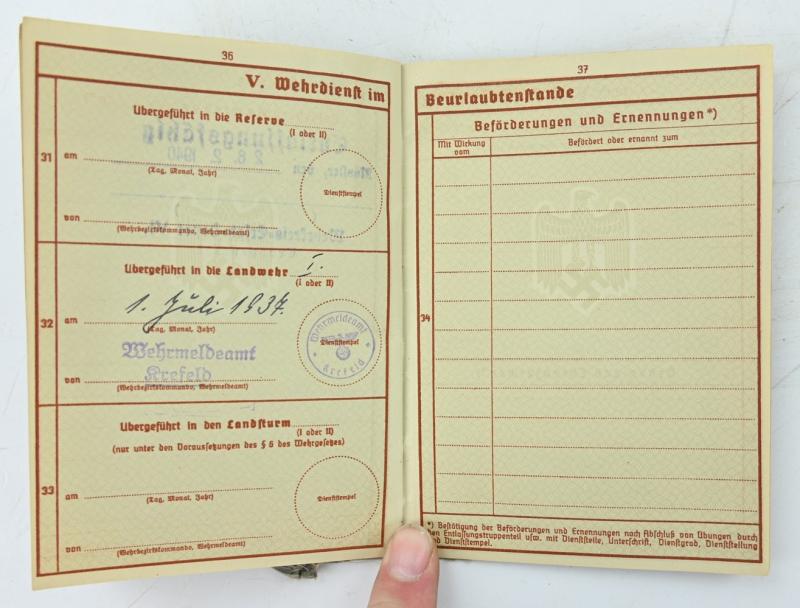 36
V. Wehrdienst im
Übergeführt in die Reserve
(I oder II)
31
am
(Tag, Monat, Jahr)
Dienststempel
von
(Wehrbezirkskommando, Wehrmeldeamt)
Übergeführt in die Landwehr I.
(I oder II)
32
am 1. Juli 1937.
(Tag, Monat, Jahr)
Wehrmeldeamt
Krefeld
von
(Wehrbezirkskommando, Wehrmeldeamt)
Wehrmeldeamt
Dienststempel
Krefeld
Übergeführt in den Landsturm
(I oder II)
(nur unter den Voraussetzungen des § 6 des Wehrgesetzes)
33
am
(Tag, Monat, Jahr)
Dienststempel
von
(Wehrbezirkskommando, Wehrmeldeamt)
37
Beurlaubtenstande
Beförderungen und Ernennungen*)
Mit Wirkung
vom
Befördert oder ernannt zum
34
*) Bestätigung der Beförderungen und Ernennungen nach Abschluß von Übungen durch
den Entlassungstruppenteil usw. mit Dienststelle, Unterschrift, Dienstgrad, Dienststellung
und Dienststempel.